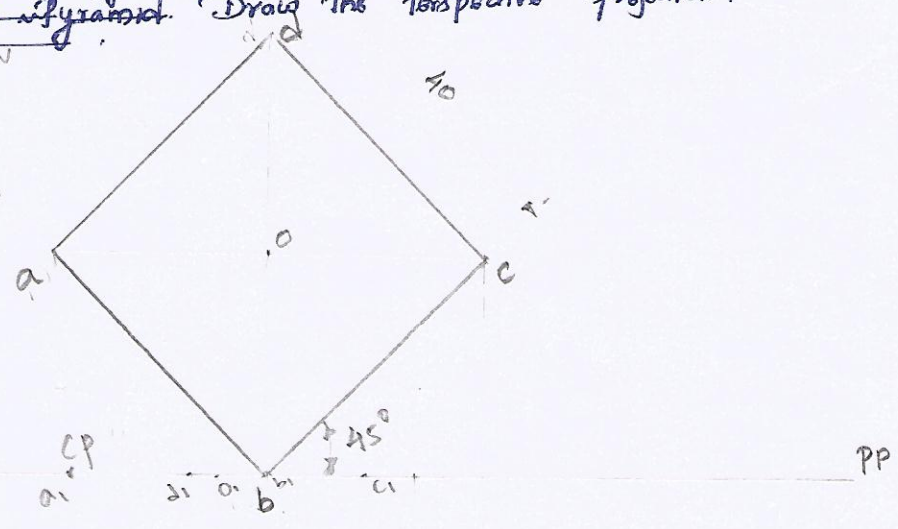 Pyramid. Draw the Perspective
d
40
O
a
c
45°
CP
PP
a₁ d₁ o₁ b b₁ c₁